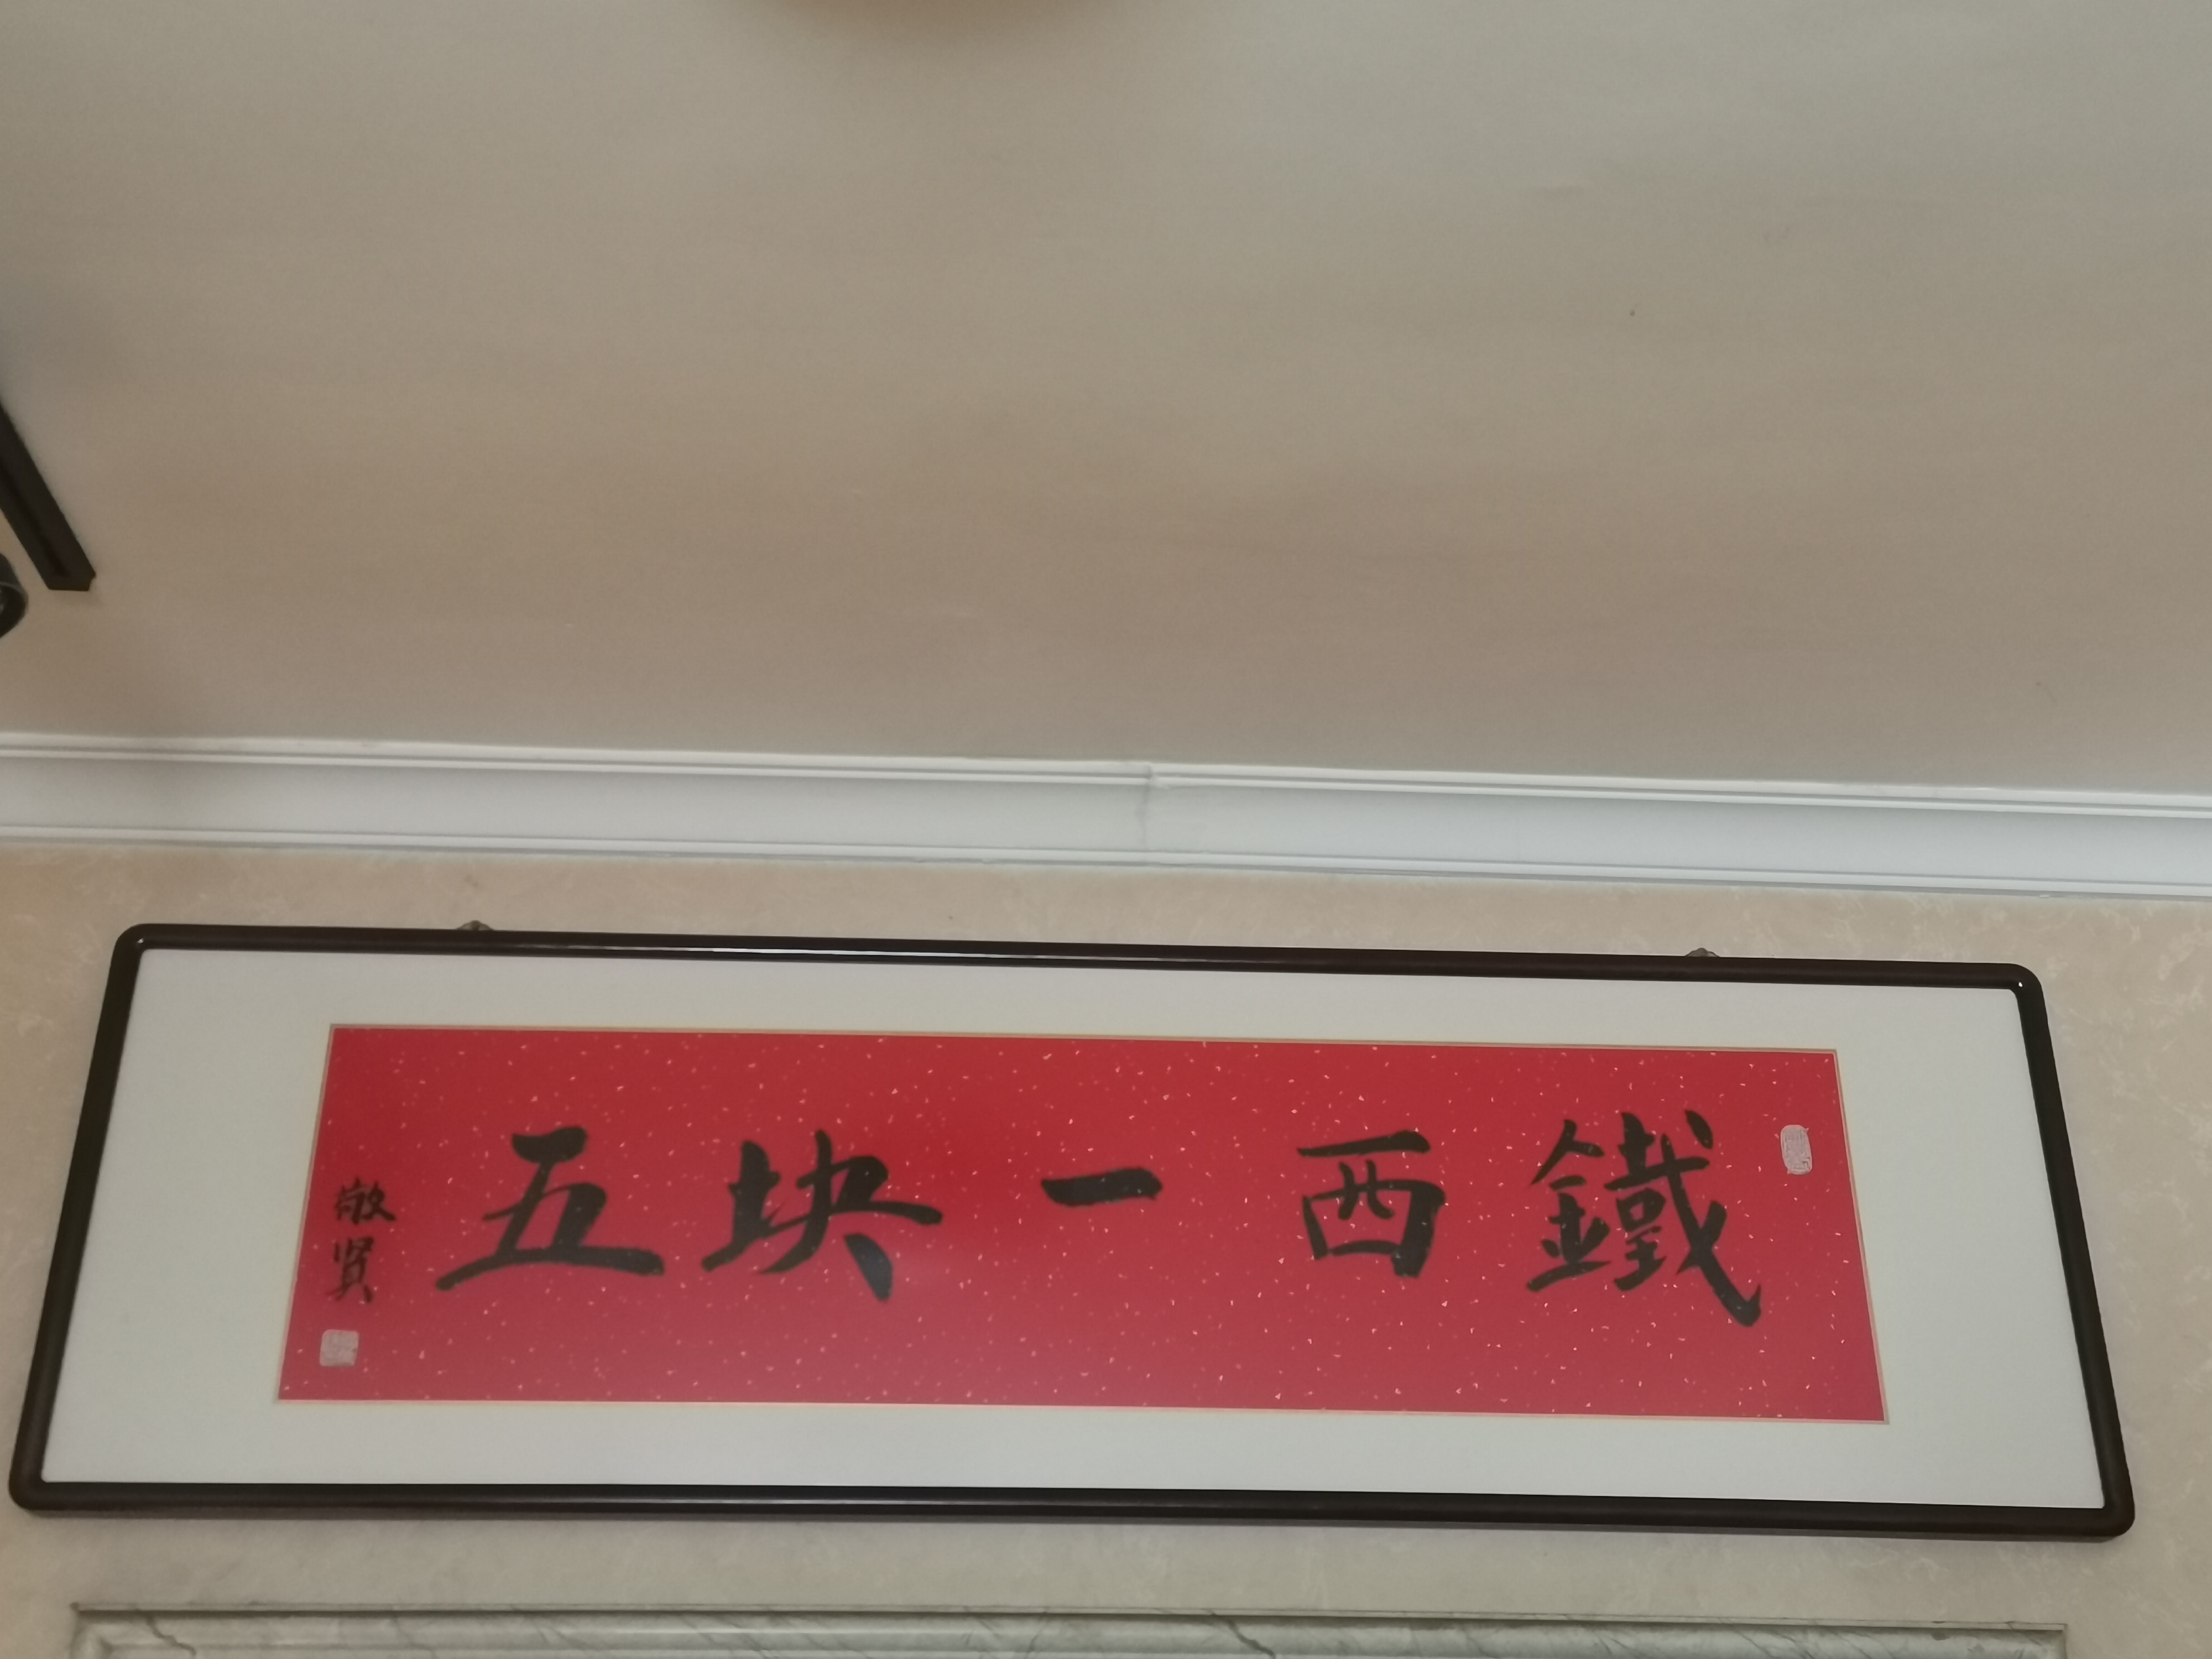 鐵西一块五
敬贤